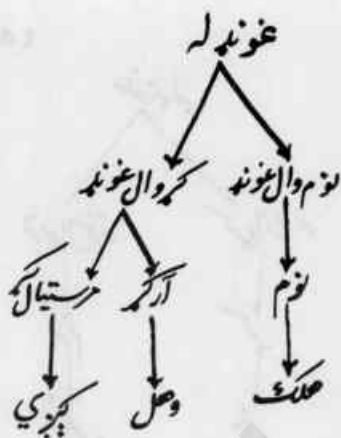 غونډله
نوم وال غونډ کړ وال غونډ
نوم آرکړ مرستیال کړ
هلک وهل کېږي